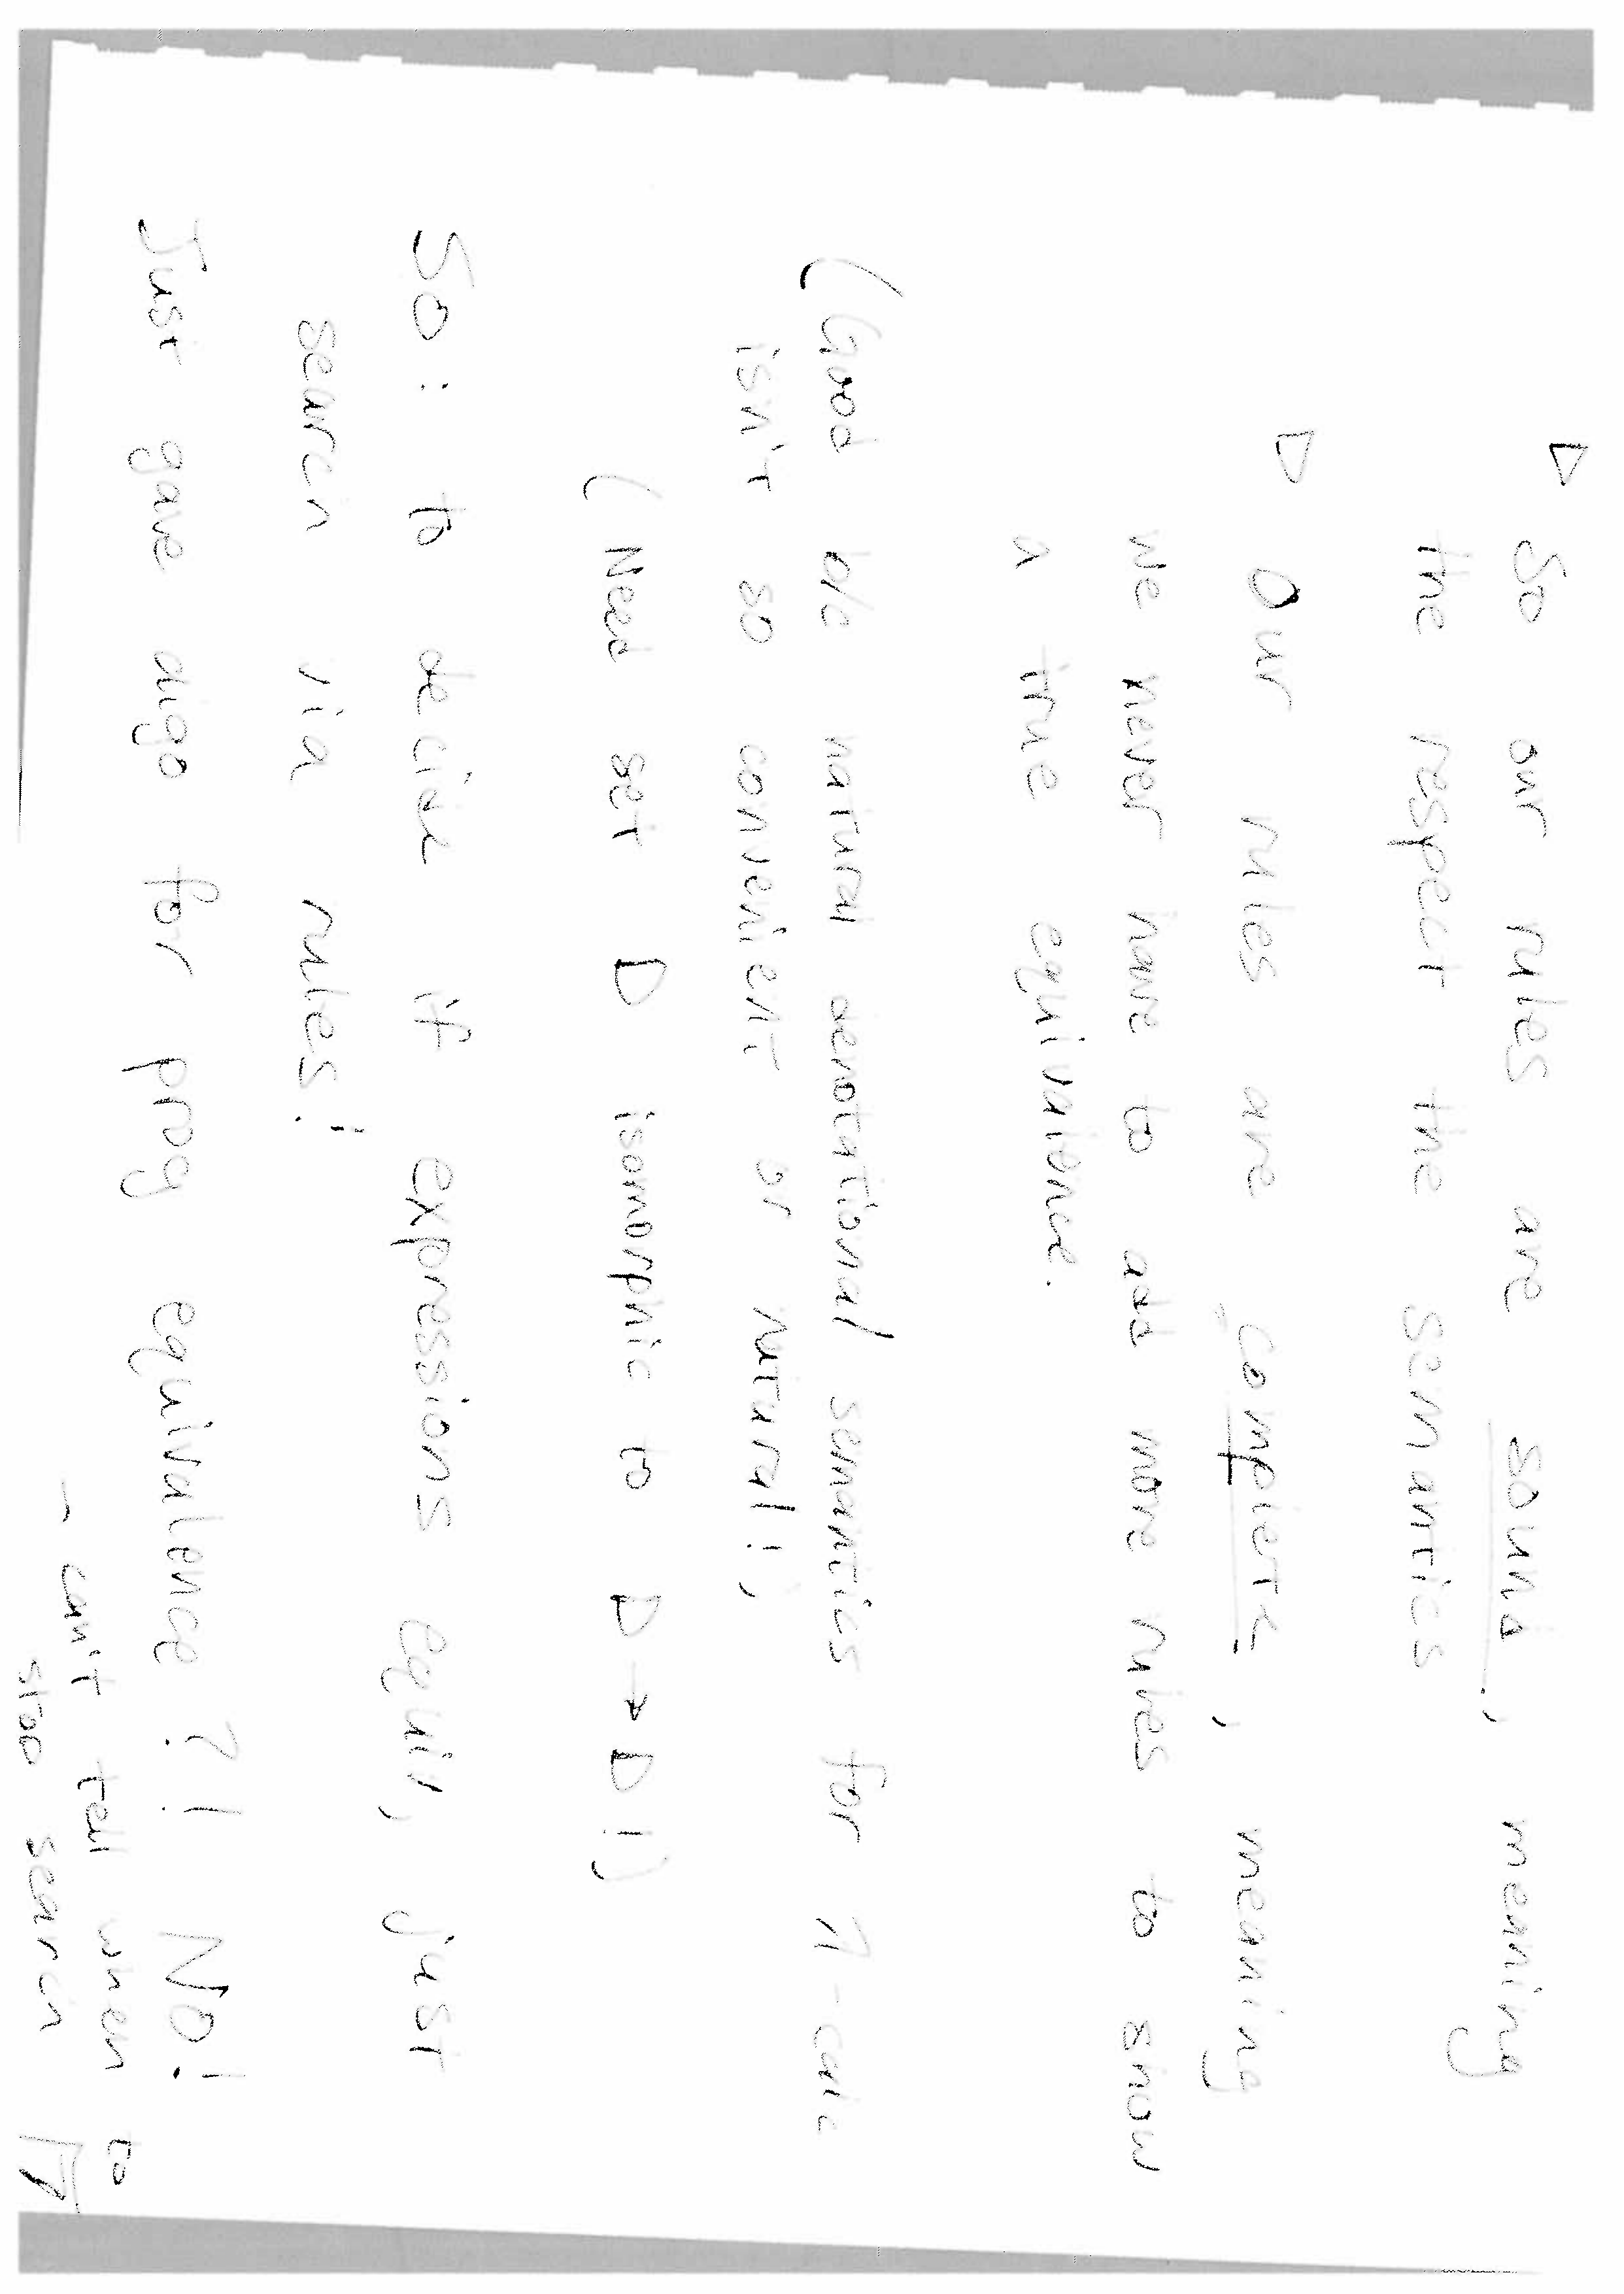 ▷ So our rules are sound, meaning
the respect the semantics
▷ Our rules are complete, meaning
we never have to add more rules to show
a true equivalence.
(Good b/c natural denotational semantics for λ-calc
isn't so convenient or natural!,
(Need set D isomorphic to D → D!)
So: to decide if expressions equiv, just
search via rules!
Just gave algo for prog equivalence?! NO!
- can't tell when to
stop search